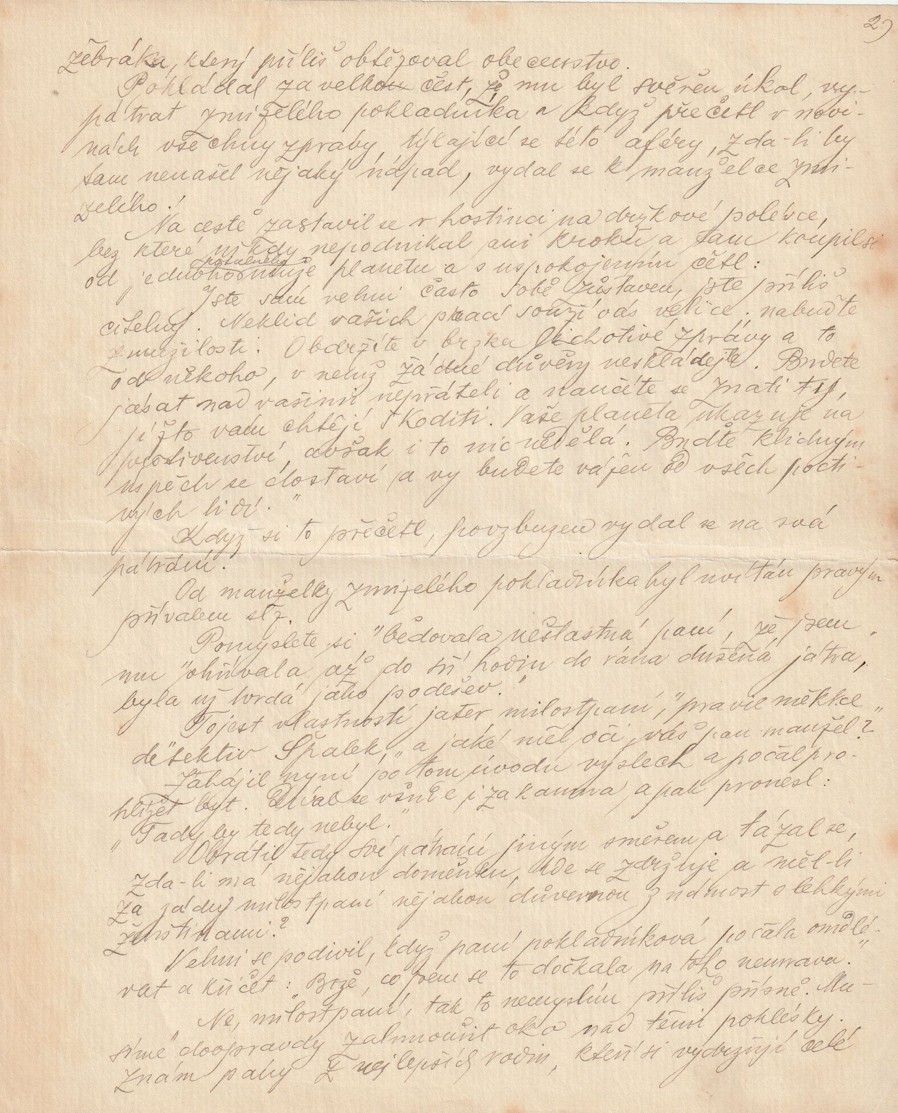 2)
žebráka, který příliš obtěžoval obecenstvo.
Pokládal za velkou čest, že mu byl svěřen úkol, vy-
pátrat zmizelého pokladníka a když přečetl v novi-
nách všechny zprávy, týkající se této aféry, zda-li by
tam nenašel nějaký nápad, vydal se k manželce zmi-
zelého.
Na cestě zastavil se v hostinci na drzkové polévce,
bez které nikdy nepodnikal ani kroku a tam koupil si
od jednonohého muže planetu a s uspokojením četl:
"Jste sám velmi často sobě zůstaven, jste příliš
citelný. Neklid vašich prací souží vás velice. nabuďte
zmužilosti. Obdržíte v brzku lichotivé zprávy a to
od někoho, v nemž žádné důvěry neskládejte. Budete
jásat nad vašimi nepřáteli a naučíte se znáti ty,
jižto vám chtějí škoditi. Vaše planeta ukazuje na
protivenství, avšak i to nic nedělá. Buďte klidným
úspěch se dostaví a vy budete vážen od všech pocti-
vých lidí."
Když si to přečetl, povzbuzen vydal se na svá
pátrání.
Od manželky zmizelého pokladníka byl uvítán pravým
přívalem slz.
Pomyslete si "bědovala nešťastná paní, že jsem
mu ohřívala až do tří hodin do rána dušená játra,
byla už tvrdá jako podešev."
"To jest vlastností jater milostpaní," pravil měkce
detektiv Špalek, "a jaké měl oči váš pan manžel?"
Zahájil nyní po tom úvodu výslech a počal pro-
hlížet byt. Díval se všude i za kamna a pak pronesl:
"Tady by tedy nebyl."
Obrátil tedy své pátrání jiným směrem a tázal se,
zda-li má nějakou domněnku, kde se zdržuje a měl-li
za zády milostpaní nějakou důvěrnou známost s lehkými
ženštinami?
Velmi se podivil, když paní pokladníková počala omdlé-
vat a křičet: Bože, co jsem se to dočkala na toho nemrava."
Ne, milostpaní, tak to nemyslím příliš přísně. Mu-
síme doopravdy zahmouřit oko nad těmi pohlésky.
Znám pány z nejlepších rodin, kteří si vydržují celé